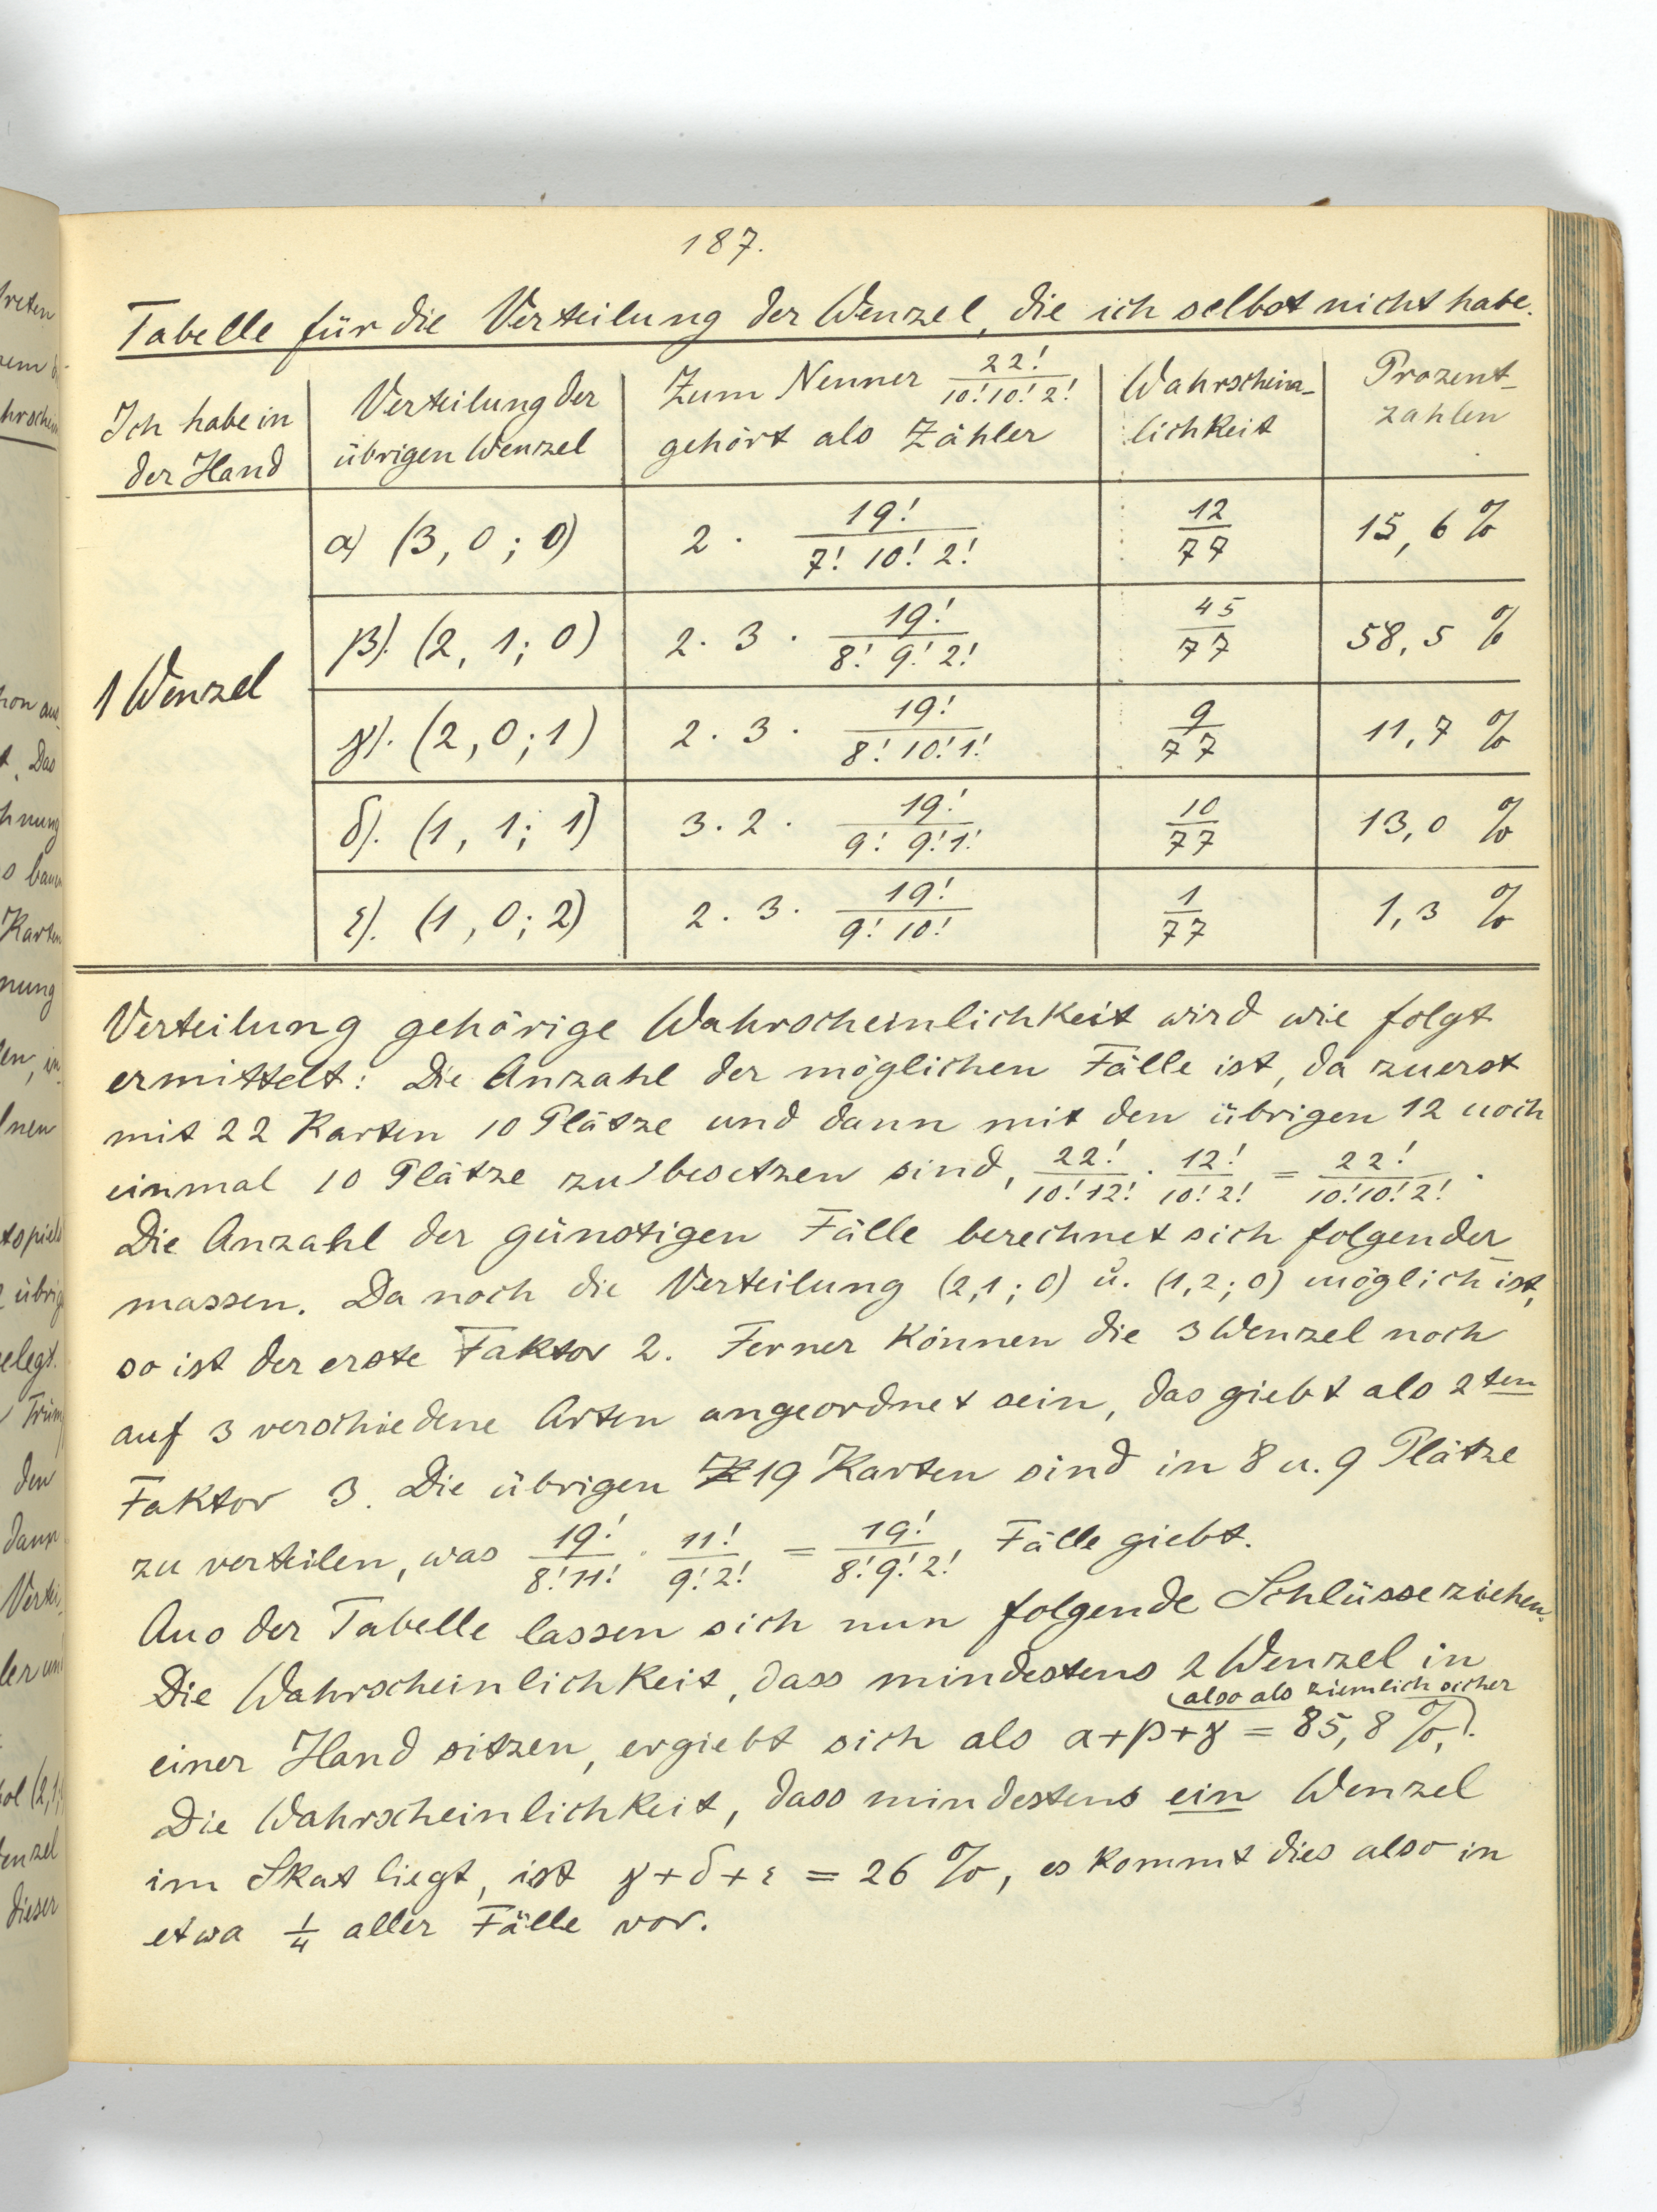 187.
Tabelle für die Verteilung der Wenzel, die ich selbst nicht habe.
Ich habe in der Hand | Verteilung der übrigen Wenzel | Zum Nenner 22!/(10! 10! 2!) gehört als Zähler | Wahrschein-lichkeit | Prozent-zahlen
1 Wenzel
α) (3, 0 ; 0) | 2 · 19!/(7! 10! 2!) | 12/77 | 15,6 %
β). (2, 1; 0) | 2 · 3 · 19!/(8! 9! 2!) | 45/77 | 58,5 %
γ). (2, 0; 1) | 2 · 3 · 19!/(8! 10! 1!) | 9/77 | 11,7 %
δ). (1, 1; 1) | 3 · 2 · 19!/(9! 9! 1!) | 10/77 | 13,0 %
ε). (1, 0; 2) | 2 · 3 · 19!/(9! 10!) | 1/77 | 1,3 %
Verteilung gehörige Wahrscheinlichkeit wird wie folgt
ermittelt: Die Anzahl der möglichen Fälle ist, da zuerst
mit 22 Karten 10 Plätze und dann mit den übrigen 12 noch
einmal 10 Plätze zu besetzen sind, 22!/(10! 12!) · 12!/(10! 2!) = 22!/(10! 10! 2!).
Die Anzahl der günstigen Fälle berechnet sich folgender-
massen. Da noch die Verteilung (2,1; 0) u. (1,2; 0) möglich ist,
so ist der erste Faktor 2. Ferner können die 3 Wenzel noch
auf 3 verschiedene Arten angeordnet sein, das giebt als 2ten
Faktor 3. Die übrigen 19 Karten sind in 8 u. 9 Plätze
zu verteilen, was 19!/(8! 11!) · 11!/(9! 2!) = 19!/(8! 9! 2!) Fälle giebt.
Aus der Tabelle lassen sich nun folgende Schlüsse ziehen.
Die Wahrscheinlichkeit, dass mindestens 2 Wenzel in
(also als ziemlich sicher)
einer Hand sitzen, ergiebt sich als α+β+γ = 85,8 %.
Die Wahrscheinlichkeit, dass mindestens ein Wenzel
im Skat liegt, ist γ+δ+ε = 26 %, es kommt dies also in
etwa 1/4 aller Fälle vor.